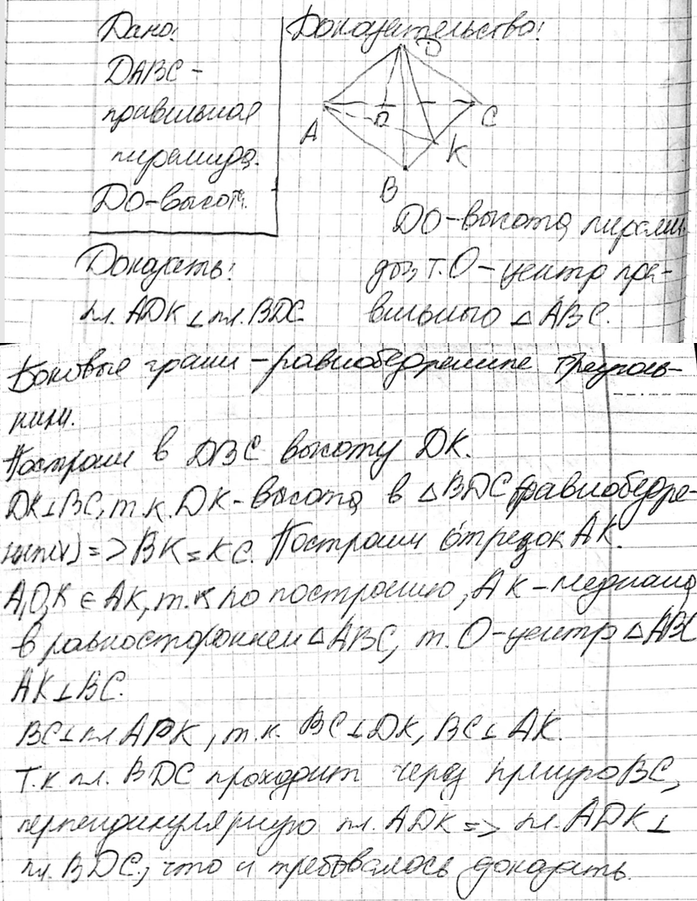 Дано:
Доказательство:
DABC -
правильная
пирамида.
DO-высот.
D
A
O
C
K
B
Доказать:
пл. ADK ⊥ пл. BDC
DO-высота пирами-
ды, т. O - центр пра-
вильного △ABC.
Боковые грани - равнобедренные треуголь-
ники.
Построим в DBC высоту DK.
DK⊥BC, т.к. DK-высота в △BDC (равнобедре-
нный) => BK = KC. Построим отрезок AK.
A,O,K ∈ AK, т.к по построению, AK - медиана
в равностороннем △ABC, т. O-центр △ABC
AK⊥BC.
BC⊥пл ADK, т.к. BC⊥DK, BC⊥AK.
Т.к пл. BDC проходит через прямую BC,
перпендикулярную пл. ADK => пл. ADK⊥
пл. BDC, что и требовалось доказать.